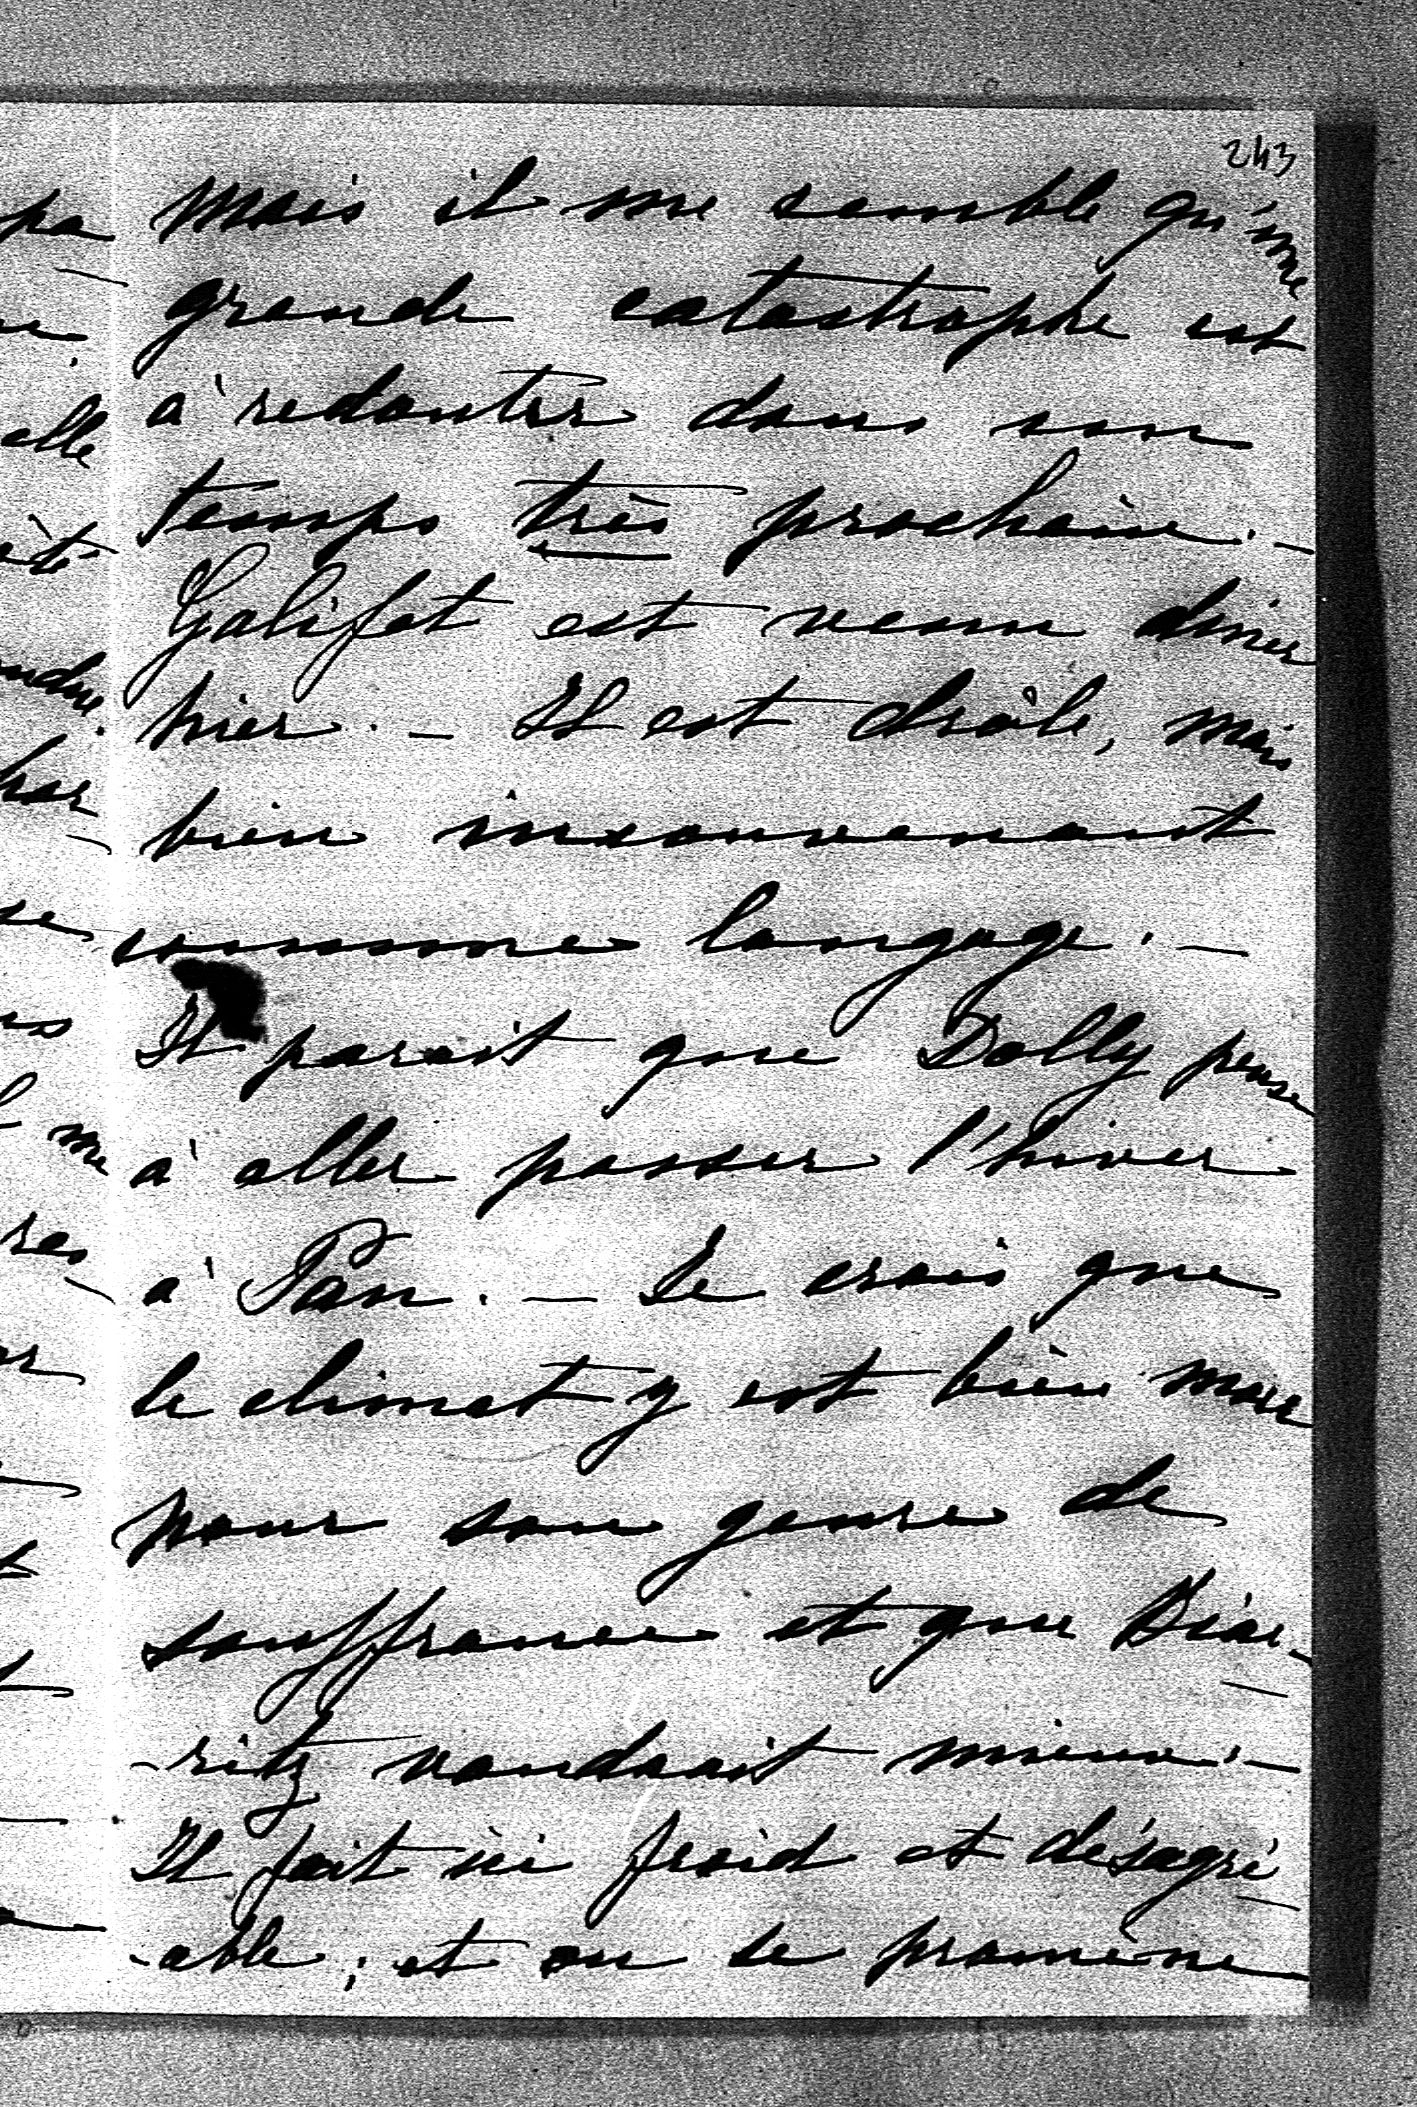 243
Mais il me semble qu'une
grande catastrophe est
à redouter dans un
temps très prochain. –
Galifet est venu diner
hier. – Il est drôle, mais
bien inconvenant
comme langage. –
Il parait que Dolly pense
à aller passer l'hiver
à Pau. – Je crois que
le climat y est bien mou
pour son genre de
souffrance et que Biar-
-ritz vaudrait mieux. –
Il fait ici froid et désagré-
-able; et on se promène